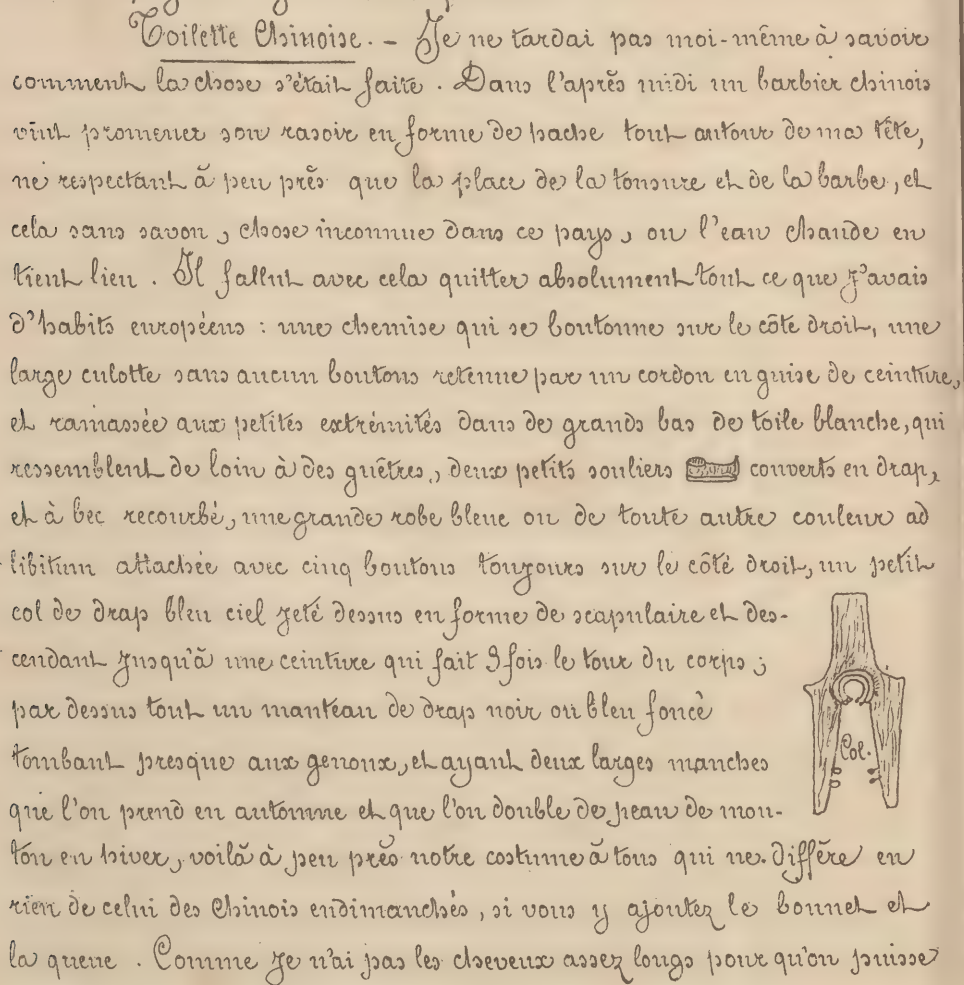 Toilette Chinoise. – Je ne tardai pas moi-même à savoir
comment la chose s'était faite. Dans l'après midi un barbier chinois
vint promener son rasoir en forme de hache tout autour de ma tête,
ne respectant à peu près que la place de la tonsure et de la barbe, et
cela sans savon, chose inconnue dans ce pays, ou l'eau chaude en
tient lieu. Il fallut avec cela quitter absolument tout ce que j'avais
d'habits européens : une chemise qui se boutonne sur le côte droit, une
large culotte sans aucun boutons retenue par un cordon en guise de ceinture,
et ramassée aux petites extrémités dans de grands bas de toile blanche, qui
ressemblent de loin à des guêtres, deux petits souliers couverts en drap,
et à bec recourbé, une grande robe bleue ou de toute autre couleur ad
libitum attachée avec cinq boutons toujours sur le côté droit, un petit
col de drap bleu ciel jeté dessus en forme de scapulaire et des-
cendant jusqu'à une ceinture qui fait 3 fois le tour du corps ;
par dessus tout un manteau de drap noir ou bleu foncé
tombant presque aux genoux, et ayant deux larges manches
Col.
que l'on prend en automne et que l'on double de peau de mou-
ton en hiver, voilà à peu près notre costume à tous qui ne diffère en
rien de celui des Chinois endimanchés, si vous y ajoutez le bonnet et
la queue. Comme je n'ai pas les cheveux assez longs pour qu'on puisse